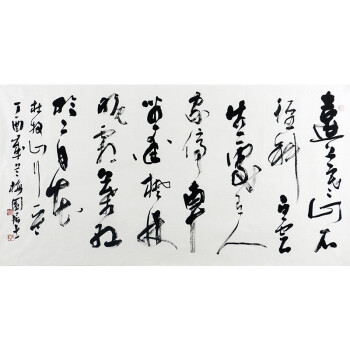 遠上寒山石
徑斜白雲
生處有人
家停車
坐愛楓林
晚霜葉紅
於二月花
杜牧山行
丁酉